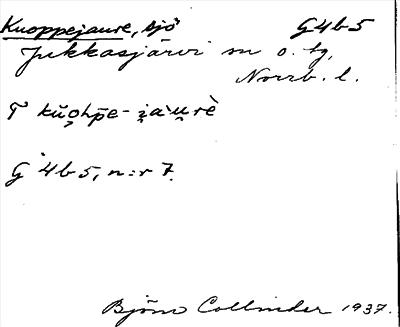 Kuoppejaure, sjö G4b5
Jukkasjärvi sn o. tg,
Norrb. l.
T kŭo̭hp̄e- i̭a̓u̯rè
G 4b5, n:r 7.
Björn Collinder 1937.